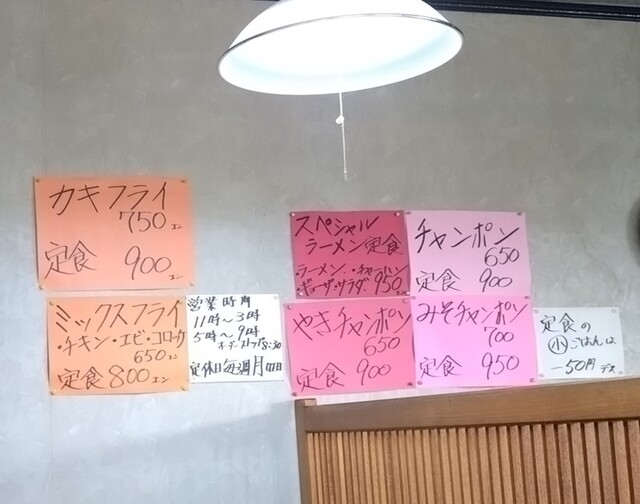 カキフライ
750エン
定食 900エン
ミックスフライ
・チキン・エビ・コロッケ
650エン
定食 800エン
営業時間
11時〜3時
5時〜9時
定休日毎週月曜日
スペシャル
ラーメン定食
ギョーザ・サラダ 950
チャンポン
650
定食 900
やきチャンポン
650
定食 900
みそチャンポン
700
定食 950
定食の
小ごはんは
-50円デス